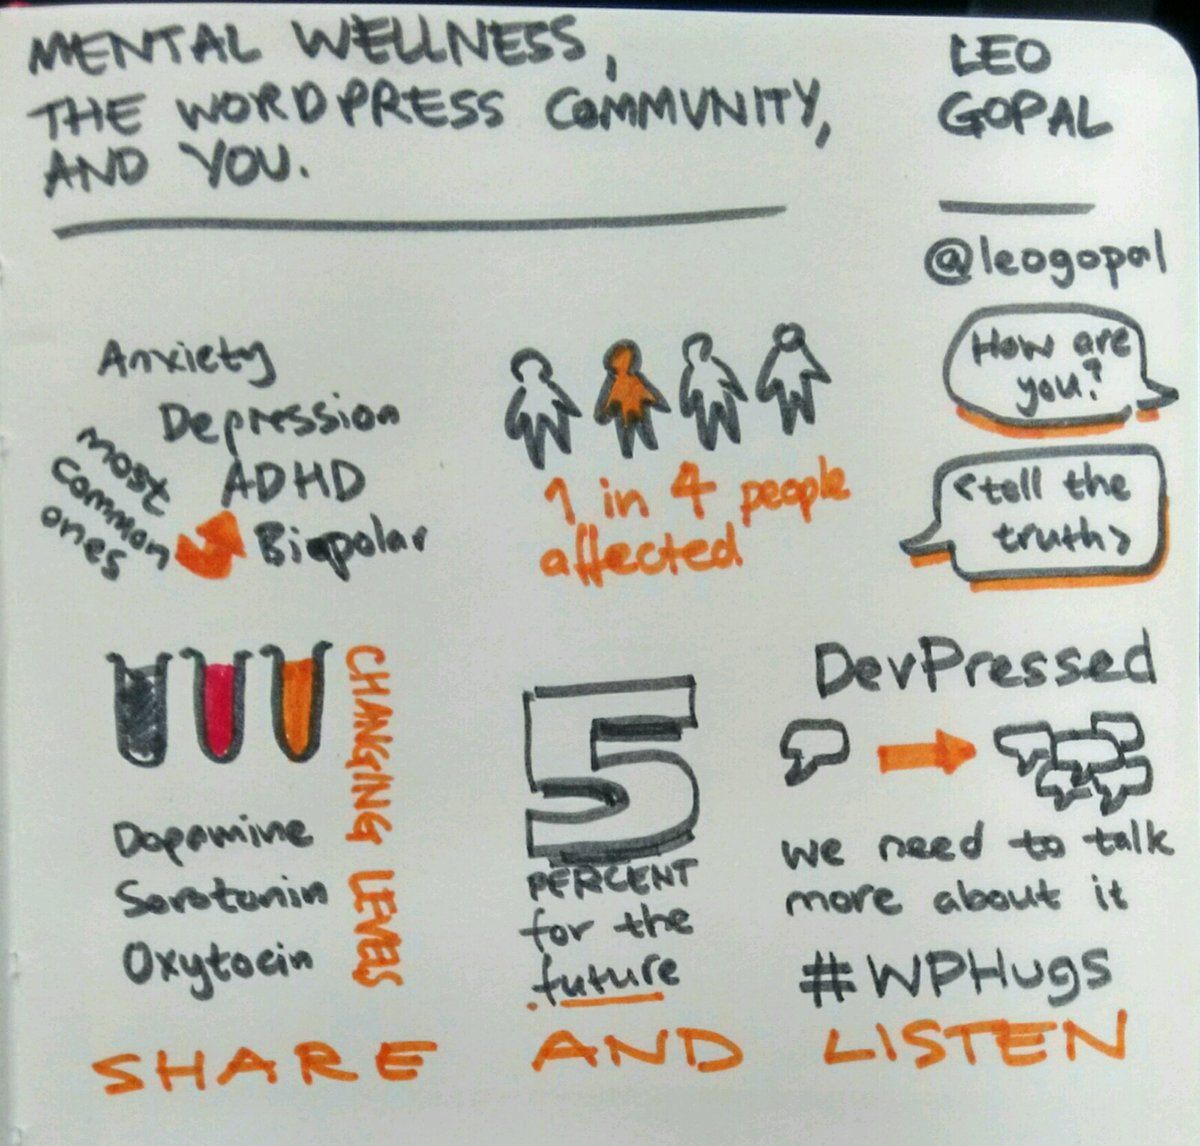 MENTAL WELLNESS,
THE WORDPRESS COMMUNITY,
AND YOU.
LEO
GOPAL
@leogopal
Anxiety
Depression
ADHD
Bipolar
most
common
ones
1 in 4 people
affected
How are
you?
<tell the
truth>
CHANGING LEVELS
Dopamine
Serotonin
Oxytocin
5
PERCENT
for the
future
DevPressed
we need to talk
more about it
#WPHugs
SHARE AND LISTEN